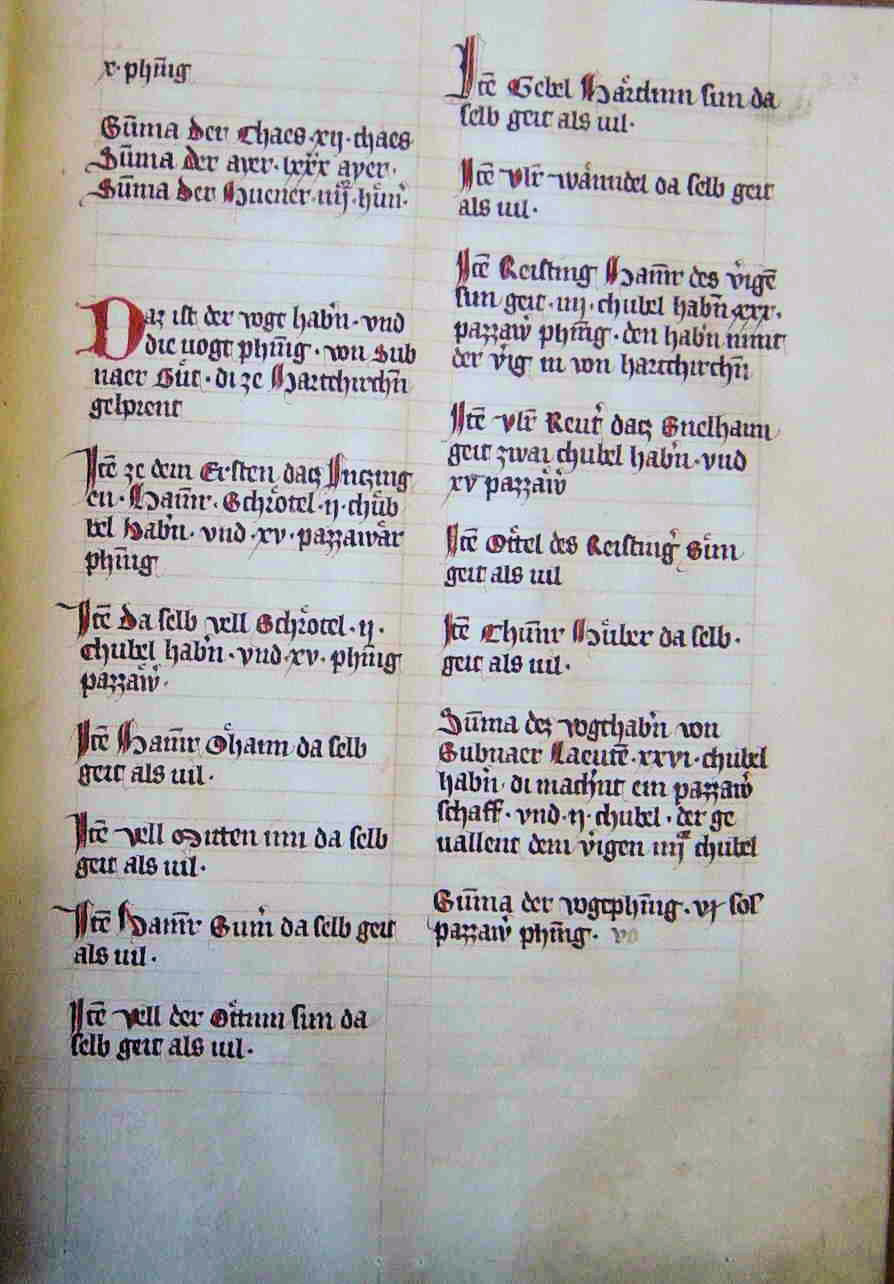 x · phn̄ig
Sum̄a der Chaes · xij · chaes
Sum̄a der ayer · lxxx ayer ·
Sum̄a der Huener · iiij · hůn̾ ·
Daz ist der vogt habn̾ · vnd
die uogt phn̄ig · von Sub
naer Gůt · di ze Hartchirchn̄
gelprent
Itē ze dem Ersten datz Intzing
en · Ham̄r · Schrotel · ij · chůb
bel habn̾ · vnd · xv · pazzawär
phn̄ig
Itē da selb vell Schrotel · ij ·
chubel habn̾ · vnd · xv · phn̄ig
pazzaw̾ ·
Itē Ham̄r Ohaim da selb
geit als uil ·
Itē vell Mitten inn da selb
geit als uil ·
Itē Ham̄r da selb geit
als uil ·
Itē vell der sun da
selb geit als uil ·
Itē Gebel sun da
selb geit als uil ·
Itē vlr̄ da selb geit
als uil ·
Itē Reisting Ham̄r des vigē
sun geit · iiij · chubel habn̄ xxx ·
pazzaw̾ phn̄ig · den habn̾ nimt
der vig in von hartchirchn̄
Itē vlr̄ Reut̾ datz Snelham
geit zwai chubel habn̾ · vnd
xv pazzaw̾
Itē Ottel des Reisting̾ Sun
geit als uil
Itē Chun̄r Hůber da selb ·
geit als uil ·
Sum̄a dez vogthabn̾ von
Subnaer Laeutē · xxvi · chubel
habn̄ · di machn̾t ein pazzaw̾
schaff · vnd · ij · chubel · der ge
uallent dem vigen iiij chubel
Sum̄a der vogtphn̄ig · vj sol
pazzaw̾ phn̄ig ·